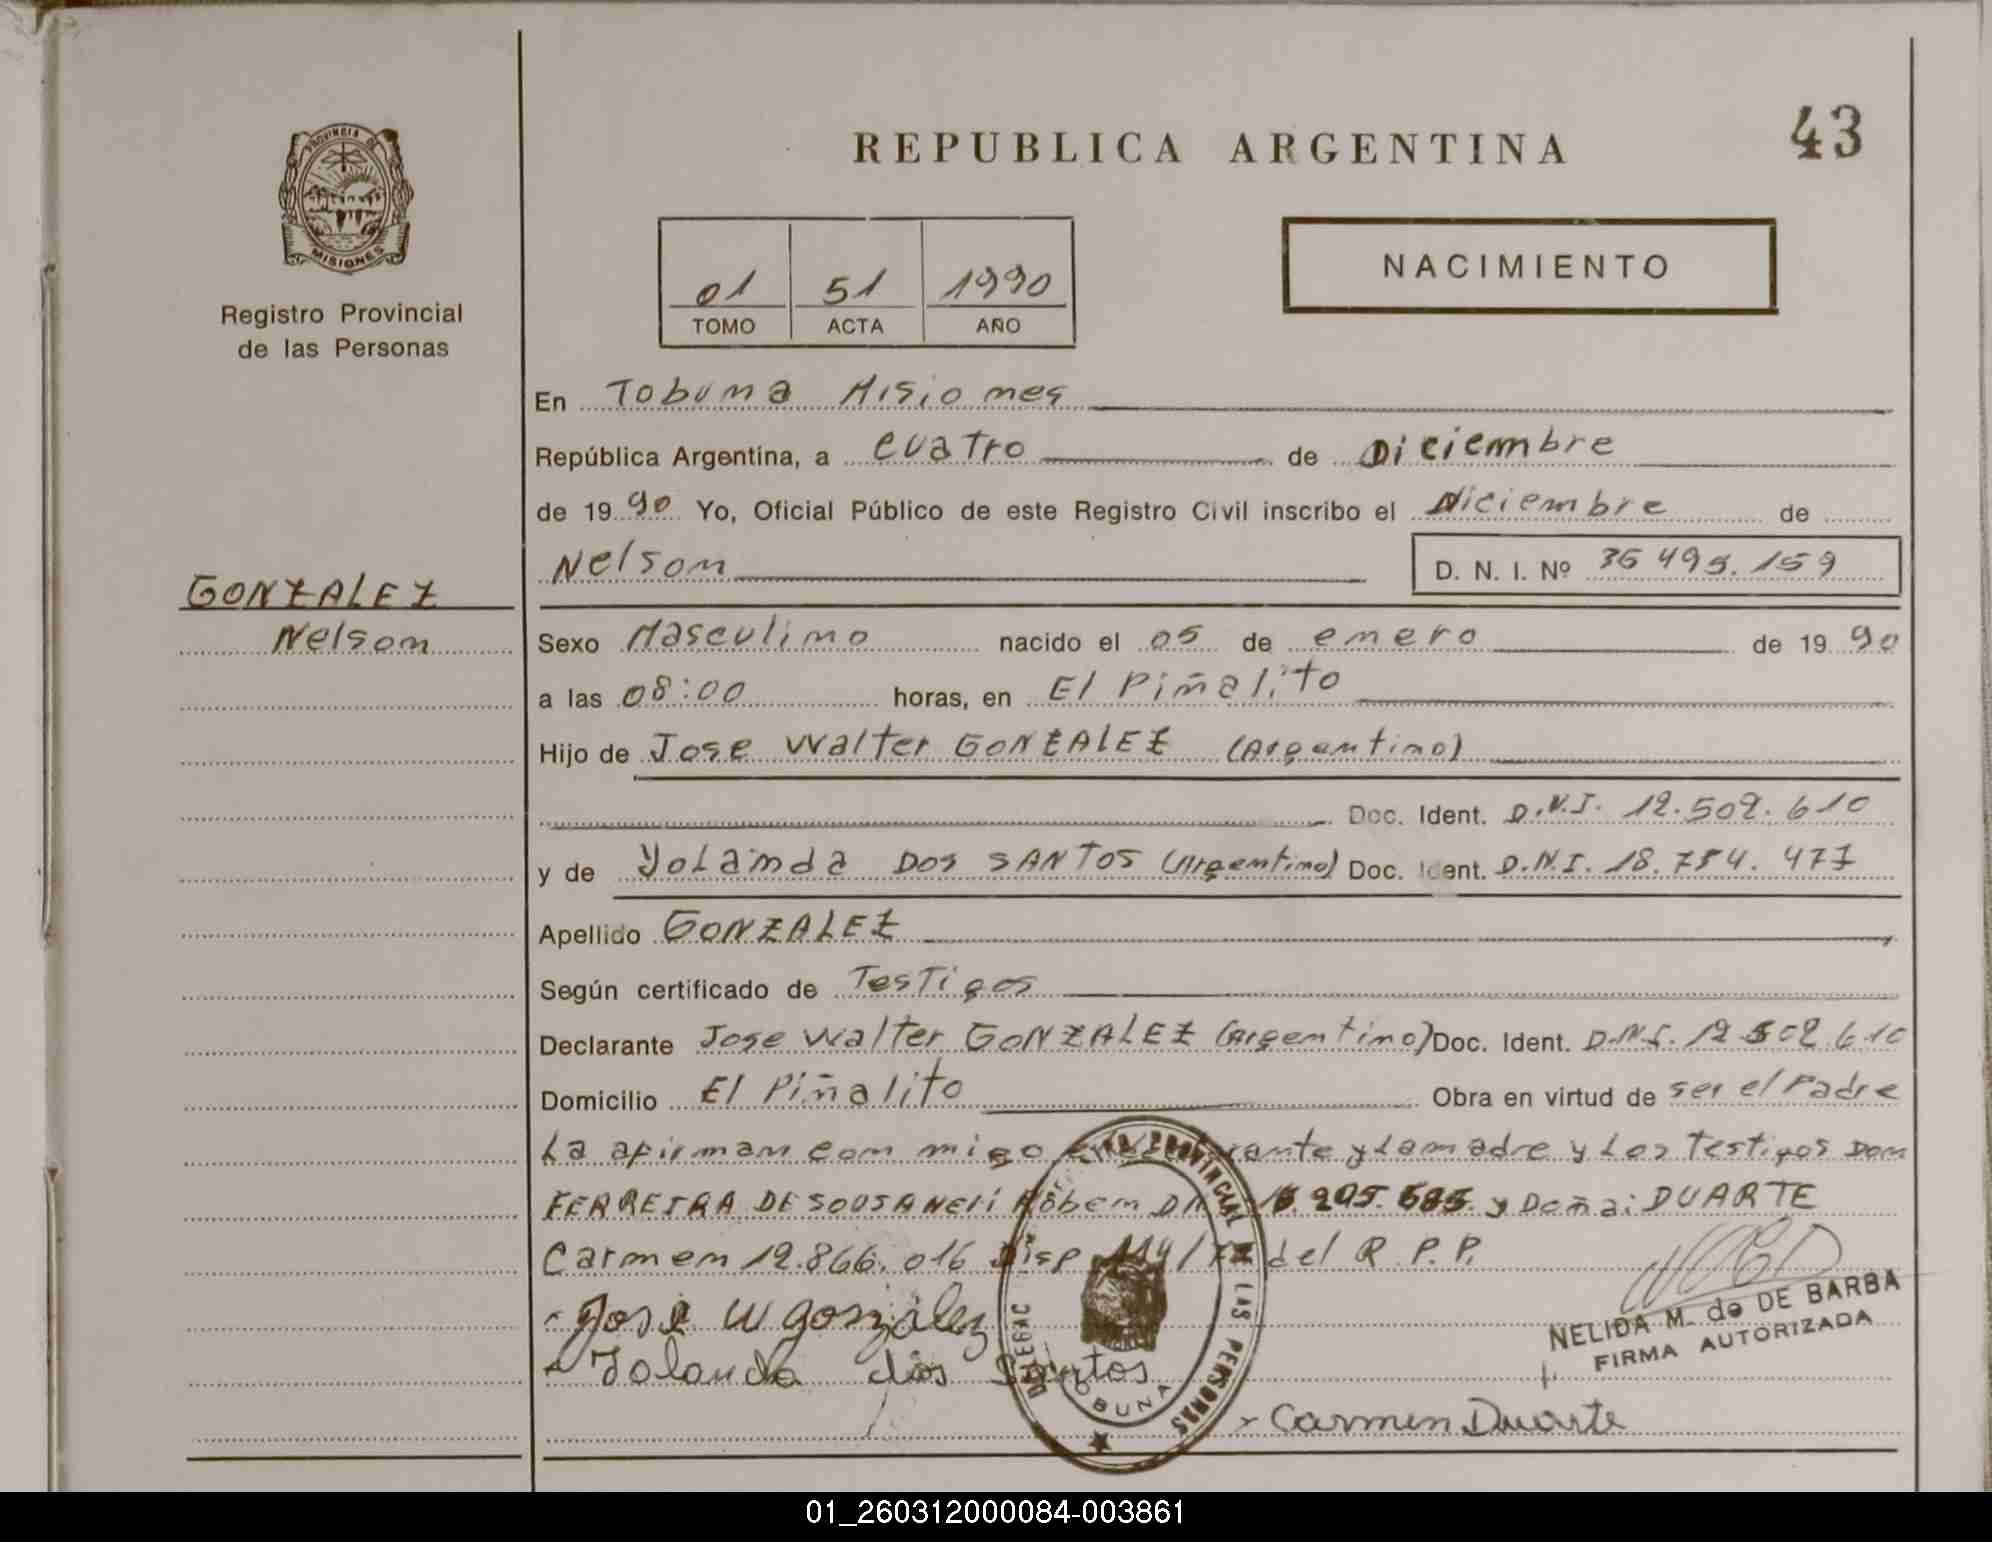 PROVINCIA DE
MISIONES
Registro Provincial
de las Personas
REPUBLICA ARGENTINA
43
01 51 1990
TOMO ACTA AÑO
NACIMIENTO
En Tobuna Misiones
República Argentina, a cuatro de Diciembre
de 1990 Yo, Oficial Público de este Registro Civil inscribo el Niciembre de
Nelson
D. N. I. Nº 36 495.159
GONZALEZ
Nelson
Sexo Masculino nacido el 05 de enero de 1990
a las 08:00 horas, en El Piñalito
Hijo de Jose Walter GONZALEZ (Argentino)
Doc. Ident. D.N.I. 12.502.610
y de Yolanda DOS SANTOS (Argentino) Doc. Ident. D.N.I. 18.754.477
Apellido GONZALEZ
Según certificado de Testigos
Declarante Jose Walter GONZALEZ (Argentino) Doc. Ident. D.N.I. 12.502.610
Domicilio El Piñalito Obra en virtud de ser el Padre
La afirman con migo y La madre y Los Testigos Don
FERREIRA DE SOUSA y Doña: DUARTE
Carmen 12.866.016 Disp del R.P.P.
Jose W González
Yolanda dos Santos
PROVINCIAL DE LAS PERSONAS
NELIDA M. de DE BARBA
FIRMA AUTORIZADA
Carmen Duarte
01_260312000084-003861